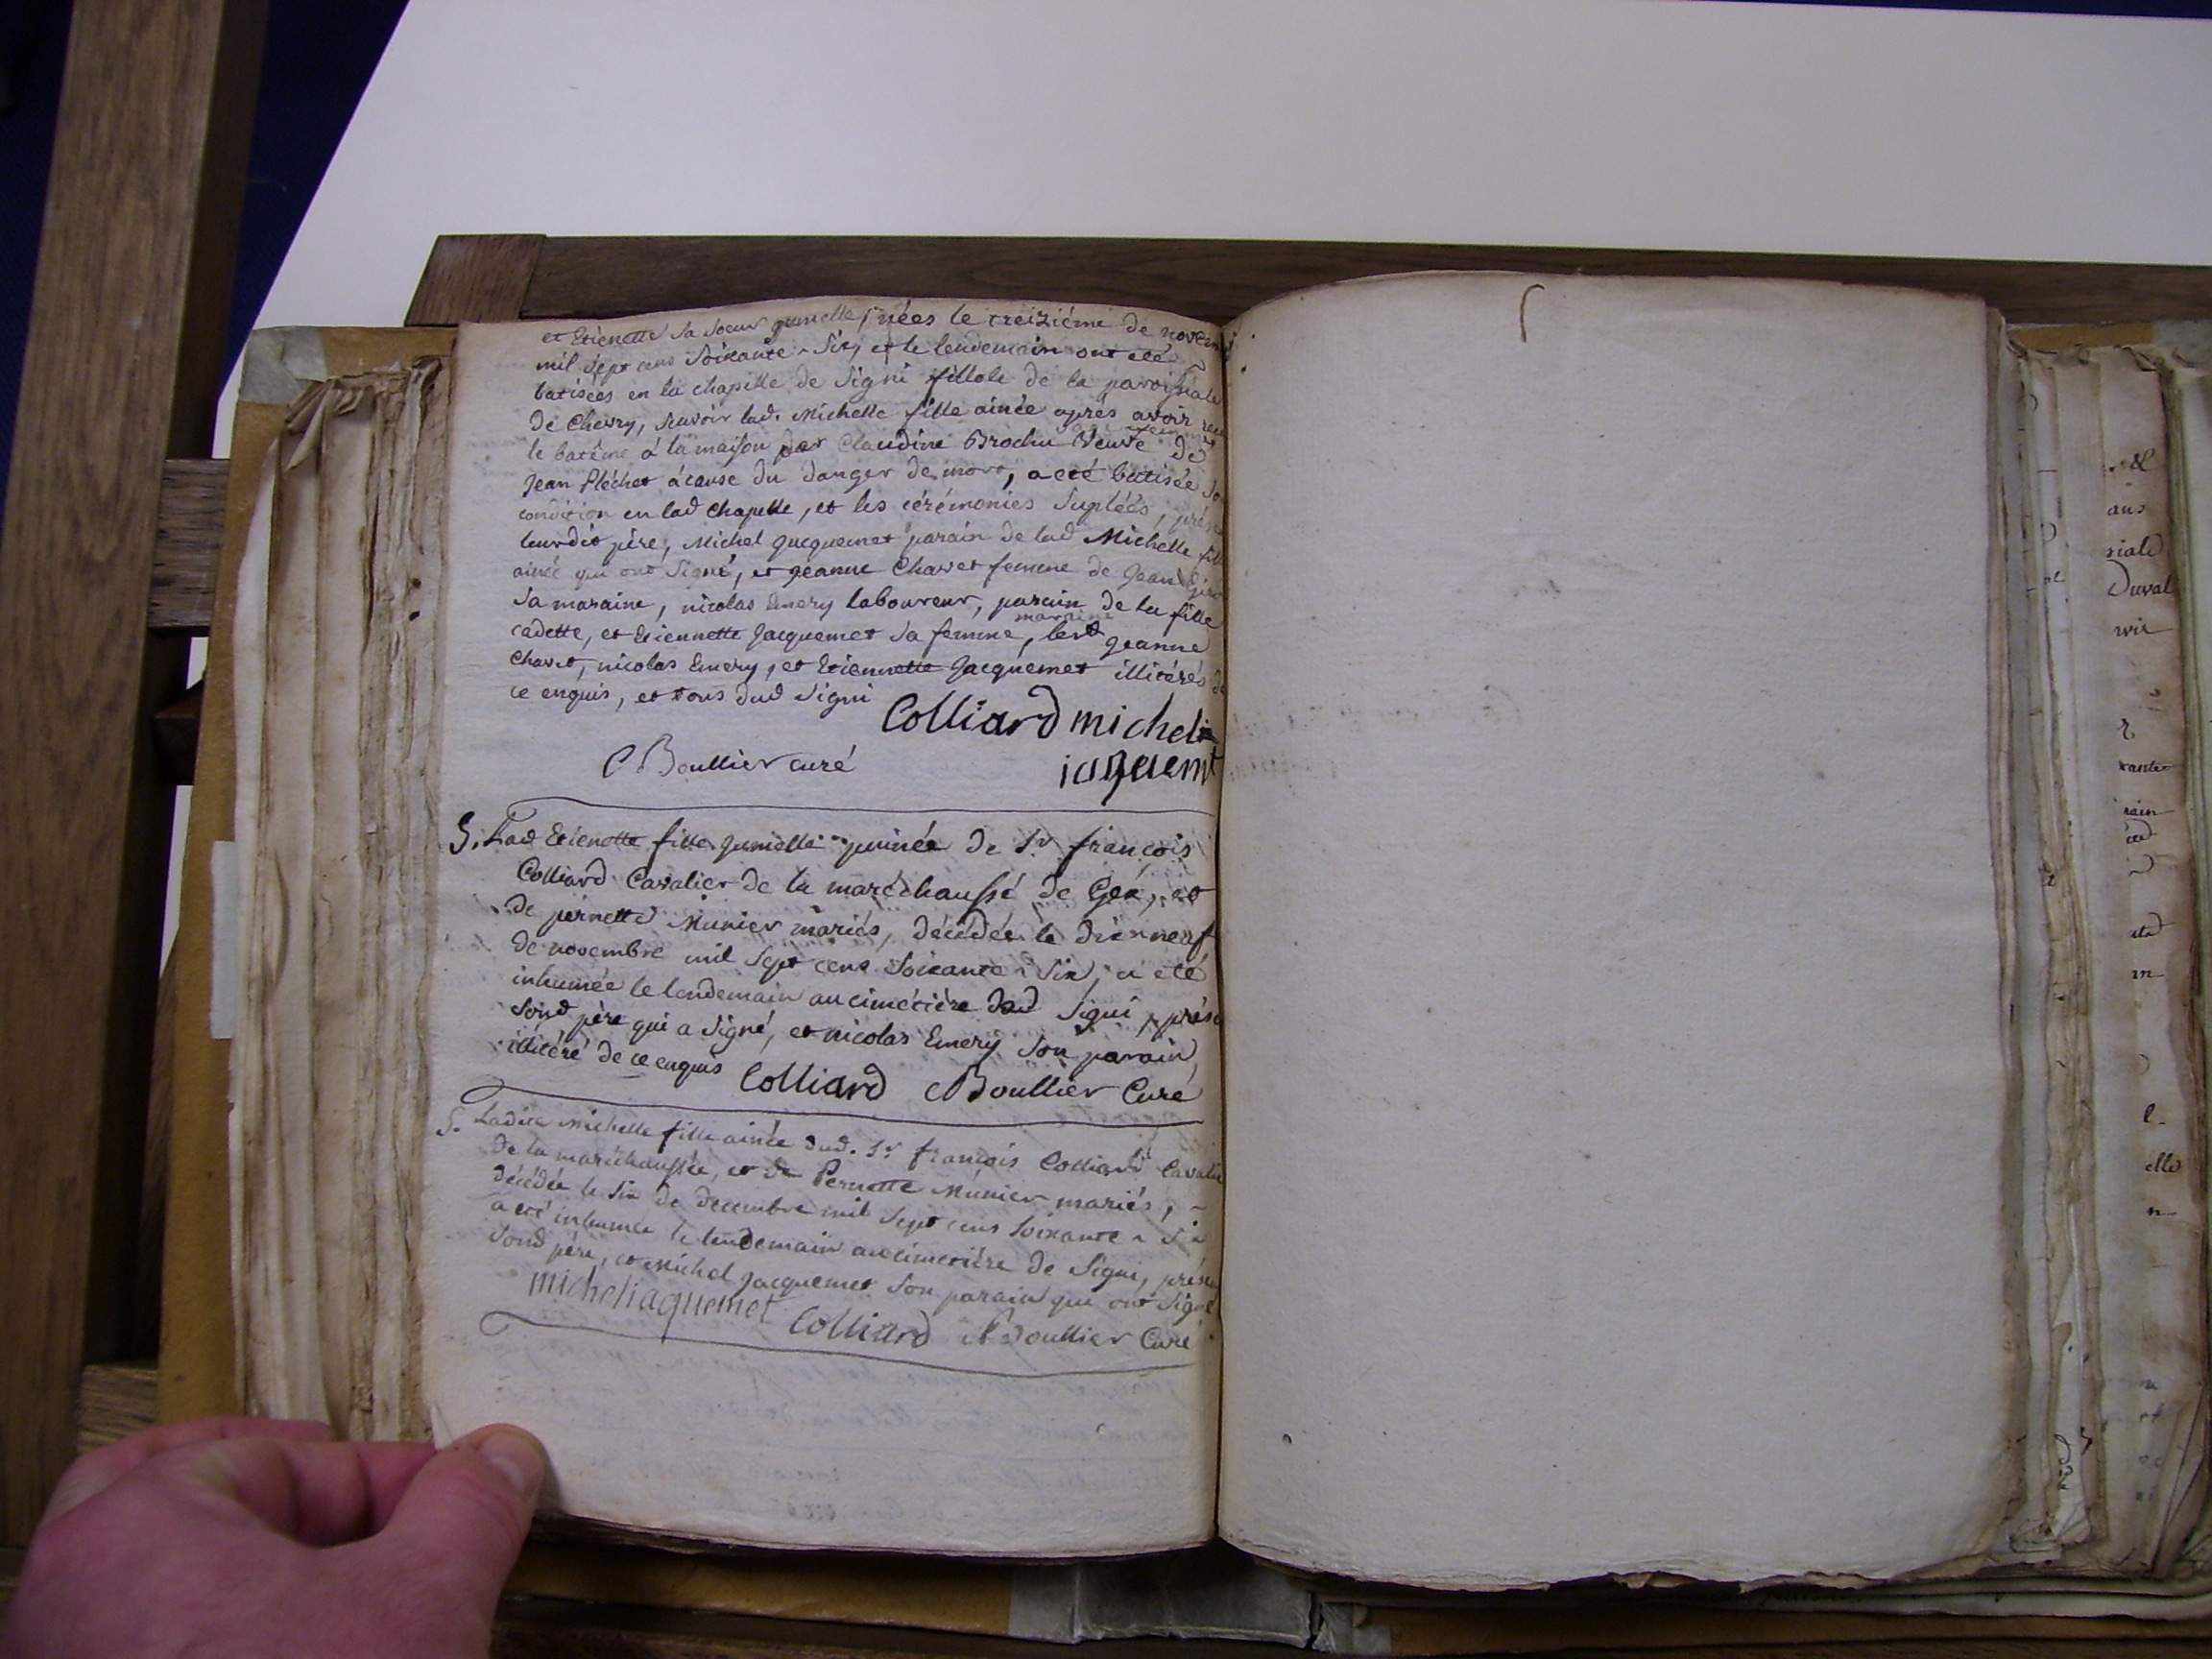 et Etienette sa soeur gumelle, nées le treiziéme de novem
mil sept cens soixante-six, et le lendemain ont été
batisées en la chapelle de Signi fillole de la paroissiale
de Chevry, savoir lad. Michelle fille ainée aprés avoir recu
le batême à la maison par Claudine Brochu Veuve de
Jean Pléchet àcause du danger de mort, a eté batisée so
condition en lad chapelle, et les cérémonies supléés, prése
leurdit pére, Michel Jacquemet parain de lad Michelle fille
ainée qui ont signé, et geanne Chavet femme de Jean
sa maraine, nicolas Emery laboureur, parain de la fille
cadette, et Etiennette Jacquemet sa femme, maraine lesd geanne
Chavet, nicolas Emery, et Etiennette Jacquemet illitérés de
ce enquis, et tous dud Signi
Colliard michel
C Boullier curé
iaquemt
S. Lad Etienette fille gumelle puinée de Sr françois
Colliard Cavalier de la maréchaussé de Gex, et
de pernette Munier mariés, décédée le dix neuf
de novembre mil sept cens soixante-six, a eté
inhumée le lendemain au cimétiére dud Signi, prése
sond pére qui a signé, et nicolas Emery son parain,
illitéré de ce enquis Colliard CBoullier Curé
S. Ladite Michelle fille ainée dud. Sr françois Colliard Cavalie
de la maréchaussée, et de Pernette Munier mariés,
décédée le six de decembre mil sept cens soixante-six
a eté inhumée le lendemain au cimetiére de Signi, présen
sond pére, et Michel Jacquemet son parain qui ont signé
micheliaquemet Colliard C Boullier Curé
ans
riale
Duval